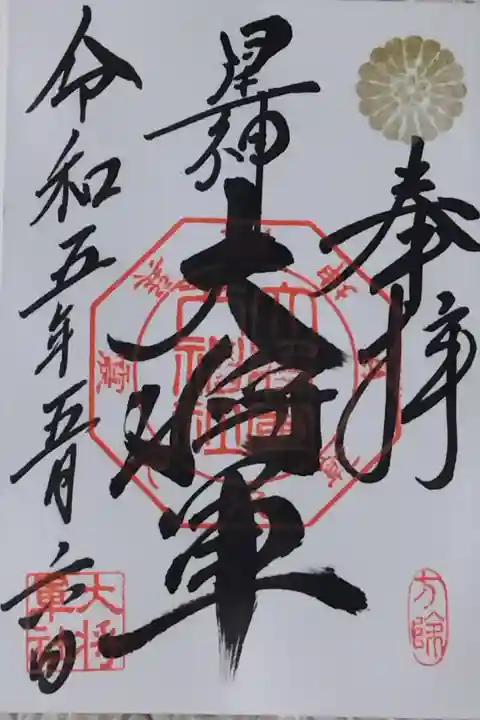 奉拝
星神
大将軍
令和五年五月六日
方除
大将
軍社